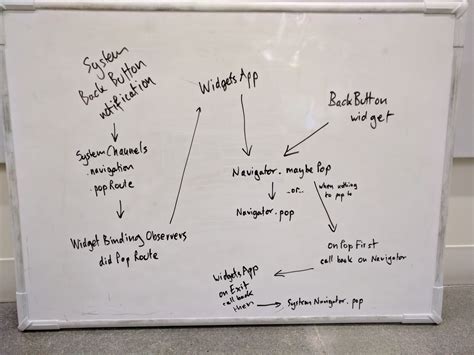 System
Back Button
notification
SystemChannels
.navigation
.popRoute
Widget Binding Observers
did Pop Route
WidgetsApp
BackButton
widget
Navigator.maybePop
-or-
Navigator.pop
when nothing
to pop to
onPopFirst
call back on Navigator
WidgetsApp
onExit
call back
then
SystemNavigator.pop